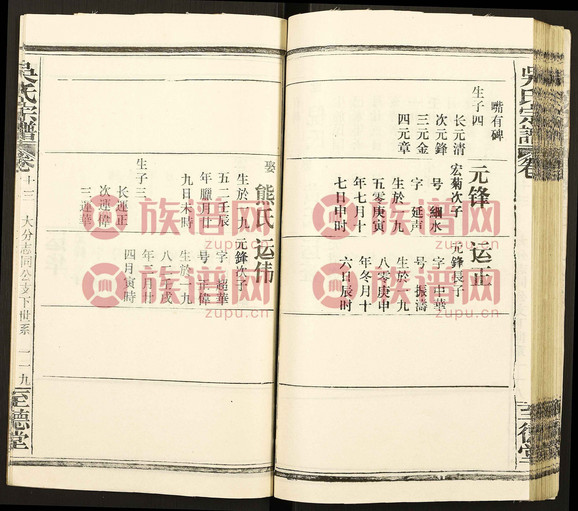 吳氏宗譜
嘴有碑
生子四
长元清
次元鋒
三元金
四元章
元锋
宏菊次子
号 綱水
字 延声
生於一九
五零庚寅
年七月十
七日申时
运正
元鋒長子
字 中華
号 振濤
生於一九
八零庚申
年冬月十
六日辰时
娶熊氏
生於一九
五二壬辰
年臘月廿
九日未時
生子三
长運正
次運偉
三運華
运伟
元鋒次子
字 超華
号 正偉
生於一九
八二壬戌
年三月廿
四月寅時
吳氏宗譜
卷十三
大分志同公支下世系
一一九
至德堂
至德堂
族谱网
zupu.cn
族谱网
zupu.cn
族谱网
zupu.cn
族谱网
zupu.cn